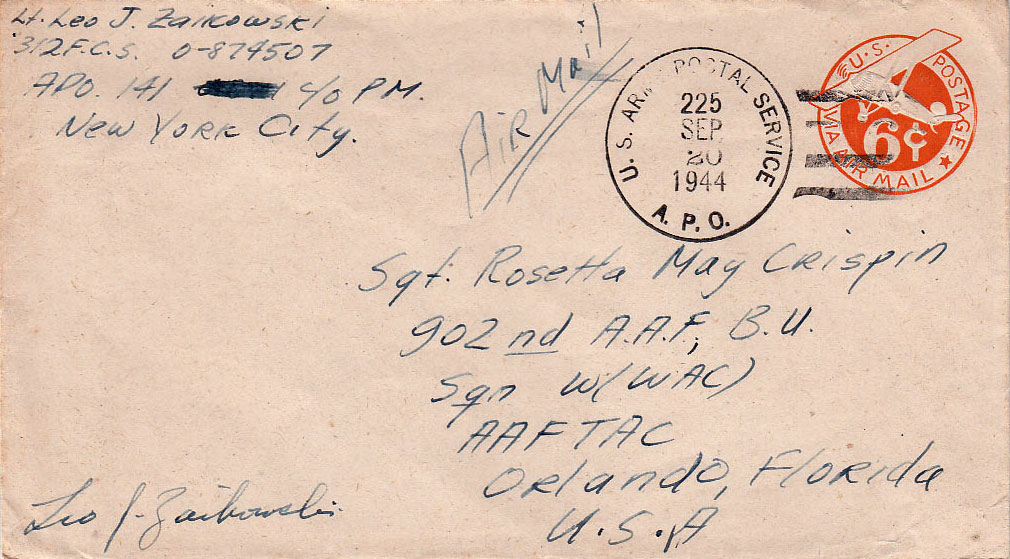 Lt. Leo J. Zaikowski
312 F.C.S. O-874507
APO. 141 c/o PM.
New York City.
Air Mail
U. S. ARMY POSTAL SERVICE
225
SEP
20
1944
A. P. O.
U.S. POSTAGE
6¢
VIA AIR MAIL
Sgt. Rosetta May Crispin
902nd A.A.F, B.U.
Sqn W (WAC)
AAFTAC
Orlando, Florida
U.S.A
Leo J. Zaikowski